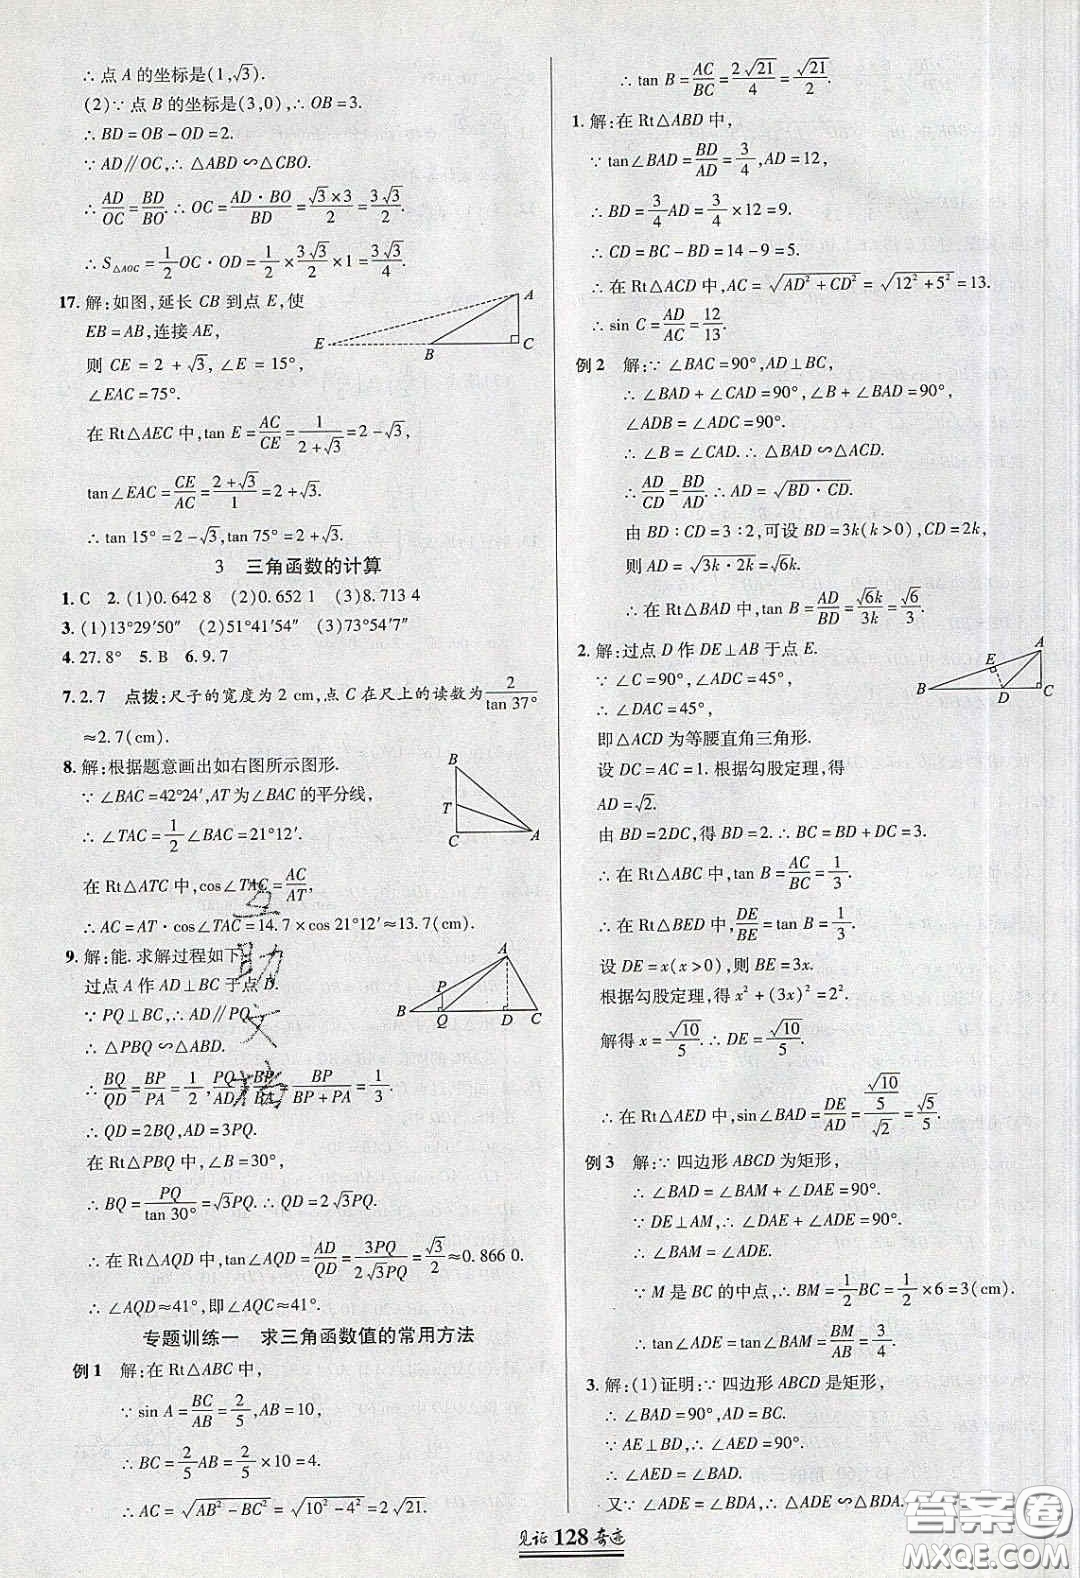 ∴点A的坐标是(1,√3).
(2)∵点B的坐标是(3,0),∴OB=3.
∴BD=OB-OD=2.
∵AD∥OC,∴△ABD∽△CBO.
∴AD/OC=BD/BO.∴OC=AD·BO/BD=√3×3/2=3√3/2.
∴S△AOC=1/2 OC·OD=1/2×3√3/2×1=3√3/4.
17.解:如图,延长CB到点E,使
EB=AB,连接AE,
则CE=2+√3,∠E=15°,
∠EAC=75°.
在Rt△AEC中,tan E=AC/CE=1/(2+√3)=2-√3,
tan∠EAC=CE/AC=(2+√3)/1=2+√3.
∴tan 15°=2-√3,tan 75°=2+√3.
A
E
B
C
3 三角函数的计算
1.C 2.(1)0.642 8 (2)0.652 1 (3)8.713 4
3.(1)13°29′50″ (2)51°41′54″ (3)73°54′7″
4.27.8° 5.B 6.9.7
7.2.7 点拨:尺子的宽度为2 cm,点C在尺上的读数为2/tan 37°
≈2.7(cm).
8.解:根据题意画出如右图所示图形.
∵∠BAC=42°24′,AT为∠BAC的平分线,
∴∠TAC=1/2∠BAC=21°12′.
在Rt△ATC中,cos∠TAC=AC/AT,
∴AC=AT·cos∠TAC=14.7×cos 21°12′≈13.7(cm).
B
T
C
A
9.解:能.求解过程如下:
过点A作AD⊥BC于点D.
∵PQ⊥BC,∴AD∥PQ.
∴△PBQ∽△ABD.
∴BQ/QD=BP/PA=1/2,PQ/AD=BP/BA=BP/(BP+PA)=1/3.
∴QD=2BQ,AD=3PQ.
在Rt△PBQ中,∠B=30°,
∴BQ=PQ/tan 30°=√3PQ.∴QD=2√3PQ.
∴在Rt△AQD中,tan∠AQD=AD/QD=3PQ/2√3PQ=√3/2≈0.866 0.
∴∠AQD≈41°,即∠AQC≈41°.
A
P
B
Q
D
C
专题训练一 求三角函数值的常用方法
例1 解:在Rt△ABC中,
∵sin A=BC/AB=2/5,AB=10,
∴BC=2/5 AB=2/5×10=4.
∴AC=√(AB²-BC²)=√(10²-4²)=2√21.
∴tan B=AC/BC=2√21/4=√21/2.
1.解:在Rt△ABD中,
∵tan∠BAD=BD/AD=3/4,AD=12,
∴BD=3/4 AD=3/4×12=9.
∴CD=BC-BD=14-9=5.
在Rt△ACD中,AC=√(AD²+CD²)=√(12²+5²)=13.
∴sin C=AD/AC=12/13.
例2 解:∵∠BAC=90°,AD⊥BC,
∴∠BAD+∠CAD=90°,∠B+∠BAD=90°,
∠ADB=∠ADC=90°.
∴∠B=∠CAD.∴△BAD∽△ACD.
∴AD/CD=BD/AD.∴AD=√(BD·CD).
由BD∶CD=3∶2,可设BD=3k(k>0),CD=2k,
则AD=√(3k·2k)=√6k.
∴在Rt△BAD中,tan B=AD/BD=√6k/3k=√6/3.
2.解:过点D作DE⊥AB于点E.
∵∠C=90°,∠ADC=45°,
∴∠DAC=45°,
即△ACD为等腰直角三角形.
设DC=AC=1.根据勾股定理,得
AD=√2.
由BD=2DC,得BD=2.∴BC=BD+DC=3.
∴在Rt△ABC中,tan B=AC/BC=1/3.
∴在Rt△BED中,DE/BE=tan B=1/3.
设DE=x(x>0),则BE=3x.
根据勾股定理,得x²+(3x)²=2².
解得x=√10/5.∴DE=√10/5.
∴在Rt△AED中,sin∠BAD=DE/AD=(√10/5)/√2=√5/5.
A
E
B
D
C
例3 解:∵四边形ABCD为矩形,
∴∠BAD=∠BAM+∠DAE=90°.
∵DE⊥AM,∴∠DAE+∠ADE=90°.
∴∠BAM=∠ADE.
∵M是BC的中点,∴BM=1/2 BC=1/2×6=3(cm).
∴tan∠ADE=tan∠BAM=BM/AB=3/4.
3.解:(1)证明:∵四边形ABCD是矩形,
∴∠BAD=90°,AD=BC.
∵AE⊥BD,∴∠AED=90°.
∴∠AED=∠BAD.
又∵∠ADE=∠BDA,∴△ADE∽△BDA.
互
助
文
答案圈
MXQE.COM
见证128奇迹